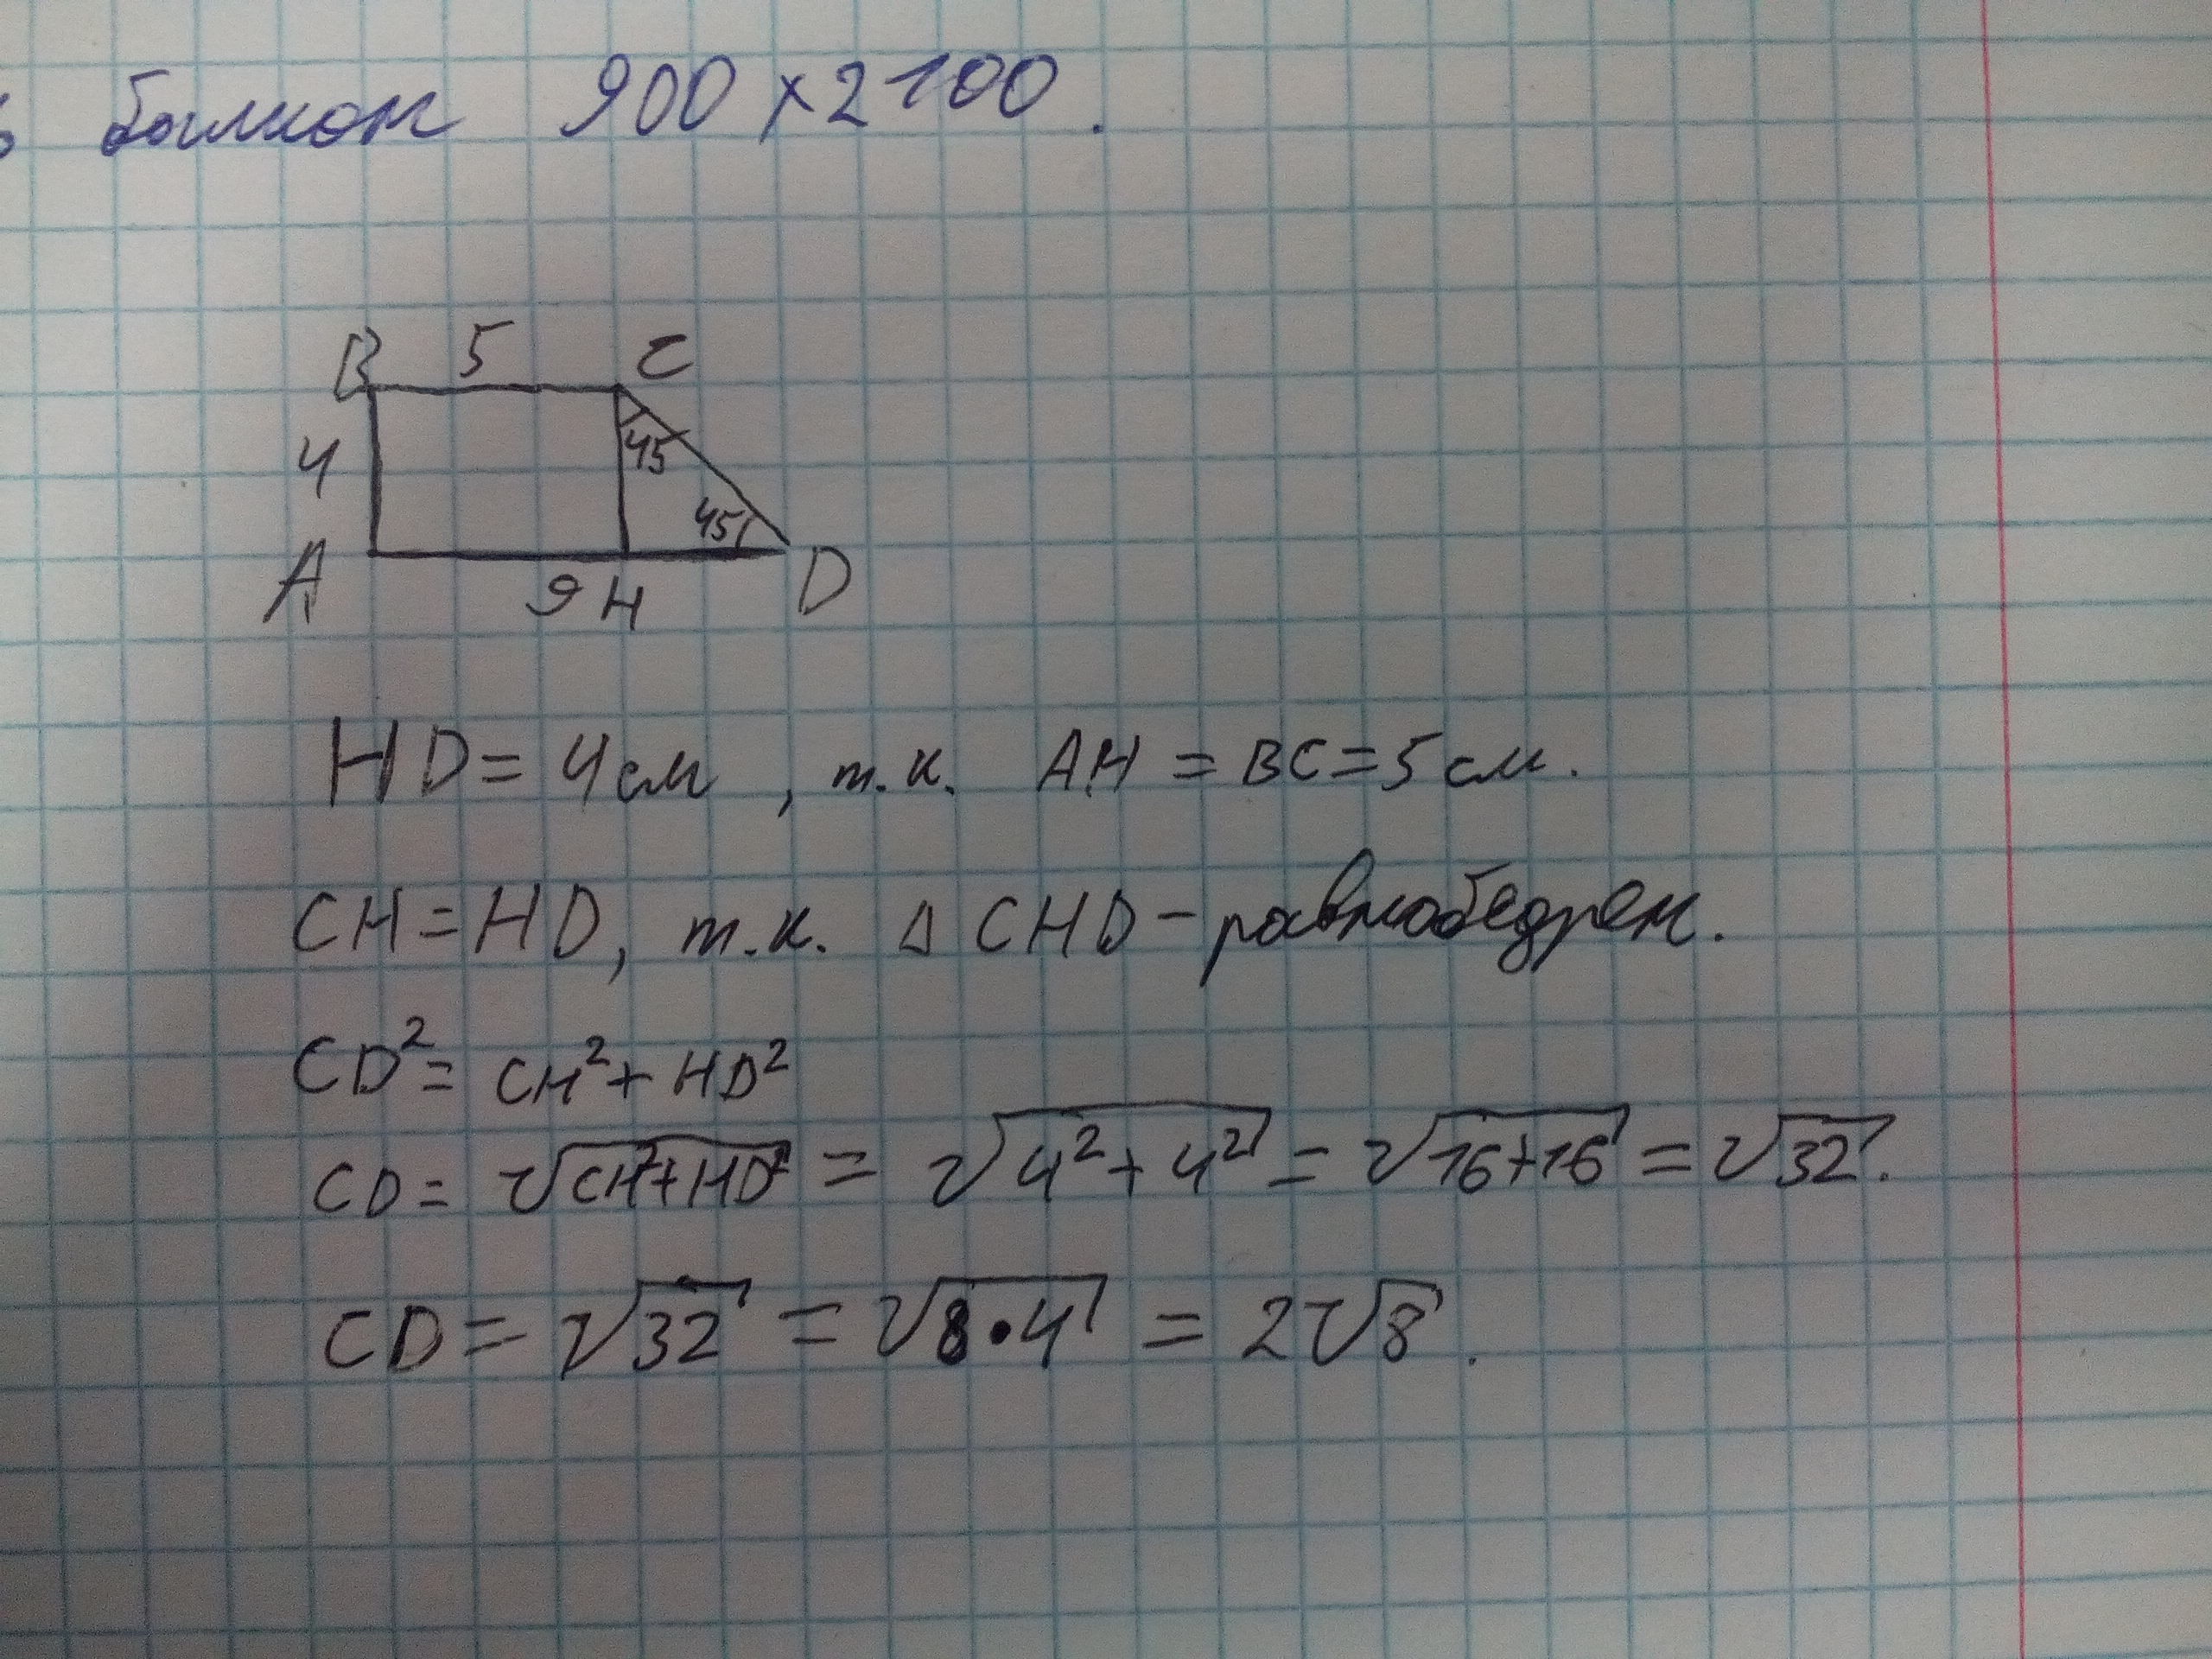 балкон 900 x 2100.
B 5 C
4 45
45
A 9 H D
HD = 4 см, т.к. AH = BC = 5 см.
CH = HD, т.к. △ CHD - равнобедрен.
CD² = CH² + HD²
CD = √(CH²+HD²) = √(4²+4²) = √(16+16) = √32.
CD = √32 = √(8·4) = 2√8.